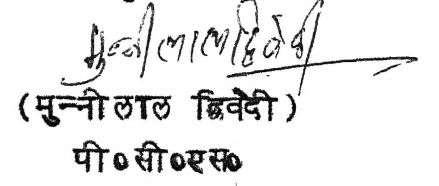 मुन्नीलाल द्विवेदी
(मुन्नीलाल द्विवेदी)
पी०सी०एस०